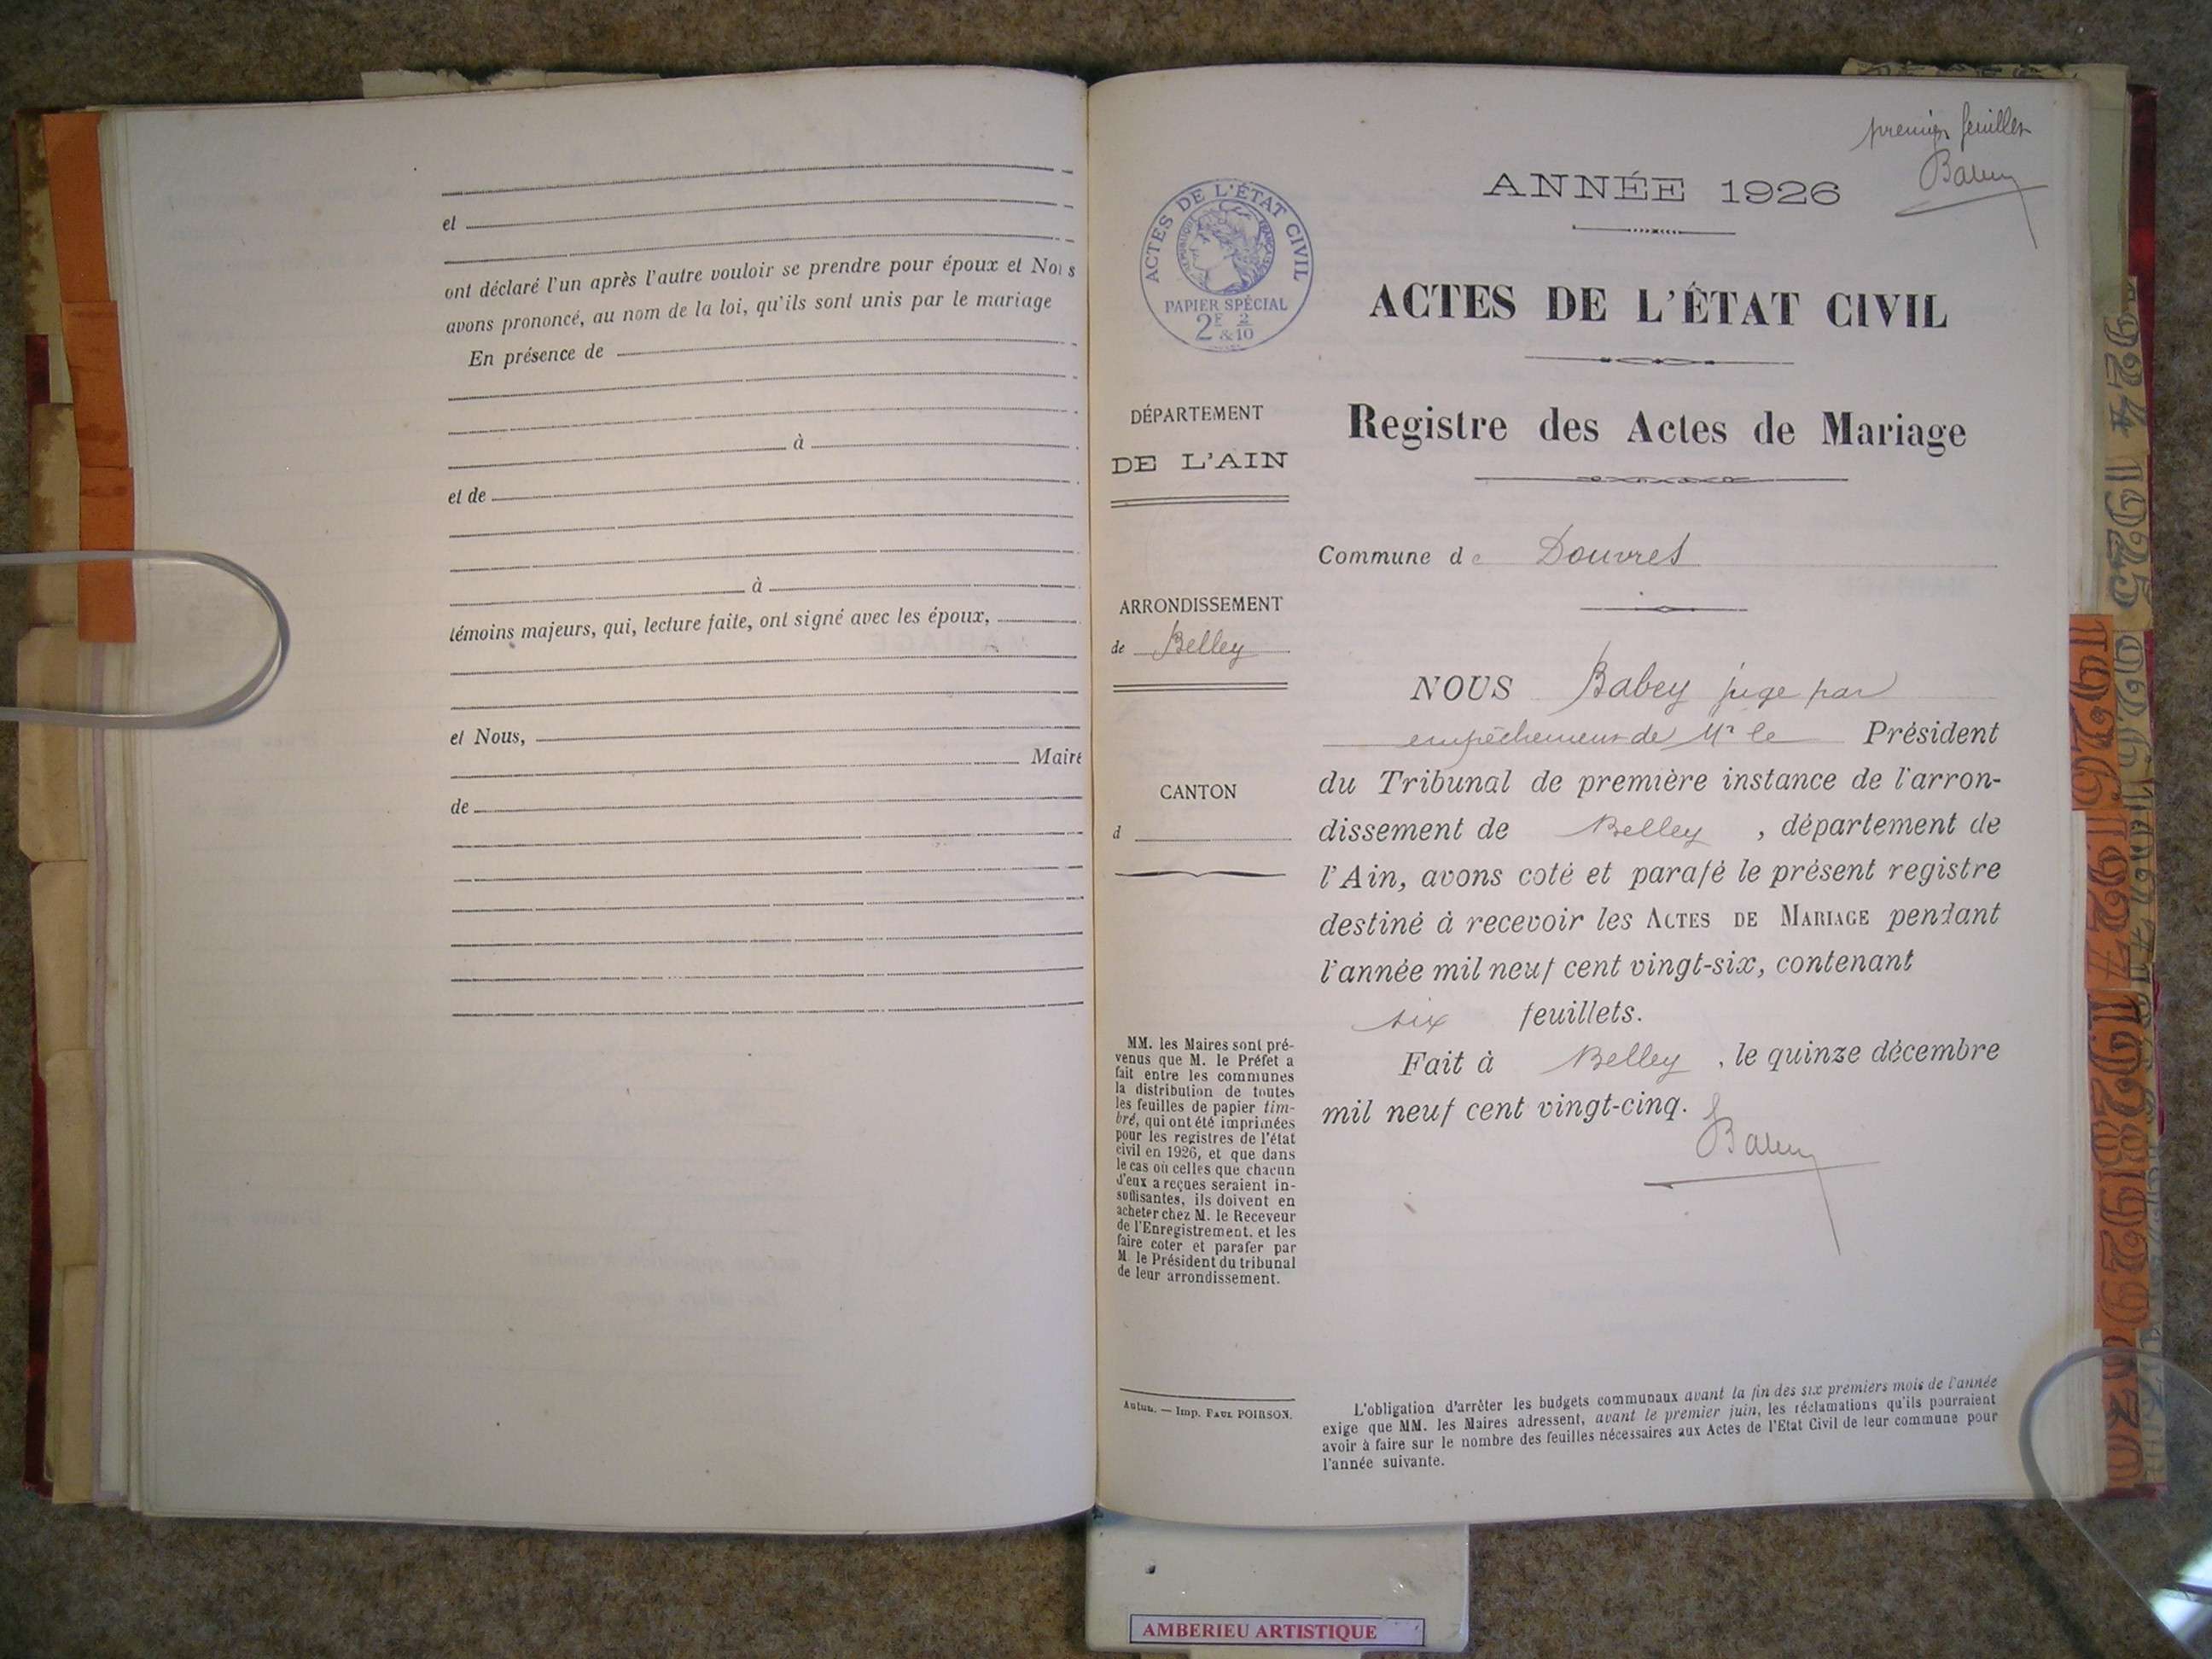 et
ont déclaré l'un après l'autre vouloir se prendre pour époux et Nous
avons prononcé, au nom de la loi, qu'ils sont unis par le mariage
En présence de
à
et de
à
témoins majeurs, qui, lecture faite, ont signé avec les époux,
et Nous,
Maire
de
premier feuillet
Babey
ANNÉE 1926
ACTES DE L'ÉTAT CIVIL
RÉPUBLIQUE FRANÇAISE
PAPIER SPÉCIAL
2F 2
&10
ACTES DE L'ÉTAT CIVIL
Registre des Actes de Mariage
DÉPARTEMENT
DE L'AIN
Commune de Douvres
ARRONDISSEMENT
de Belley
CANTON
d
NOUS Babey juge par
empêchement de Mr le Président
du Tribunal de première instance de l'arron-
dissement de Belley, département de
l'Ain, avons coté et parafé le présent registre
destiné à recevoir les ACTES DE MARIAGE pendant
l'année mil neuf cent vingt-six, contenant
six feuillets.
Fait à Belley, le quinze décembre
mil neuf cent vingt-cinq.
Babey
MM. les Maires sont pré-
venus que M. le Préfet a
fait entre les communes
la distribution de toutes
les feuilles de papier tim-
bré, qui ont été imprimées
pour les registres de l'état
civil en 1926, et que dans
le cas où celles que chacun
d'eux a reçues seraient in-
suffisantes, ils doivent en
acheter chez M. le Receveur
de l'Enregistrement, et les
faire coter et parafer par
M. le Président du tribunal
de leur arrondissement.
Autun. — Imp. PAUL POIRSON.
L'obligation d'arrêter les budgets communaux avant la fin des six premiers mois de l'année
exige que MM. les Maires adressent, avant le premier juin, les réclamations qu'ils pourraient
avoir à faire sur le nombre des feuilles nécessaires aux Actes de l'Etat Civil de leur commune pour
l'année suivante.
1924 1925 1926
1926 1927 1928 1929
AMBERIEU ARTISTIQUE